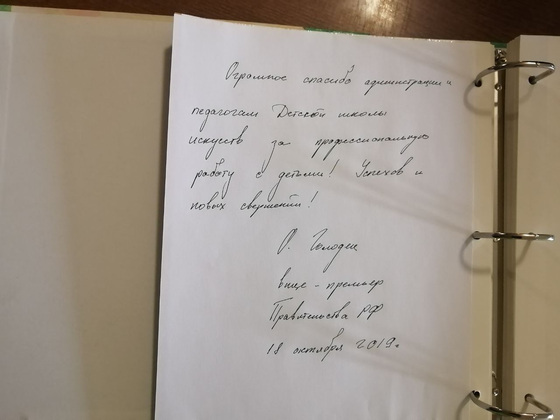 Огромное спасибо администрации и
педагогам Детской школы
искусств за профессиональную
работу с детьми! Успехов и
новых свершений!
О. Голодец
вице-премьер
Правительства РФ
18 октября 2019г.